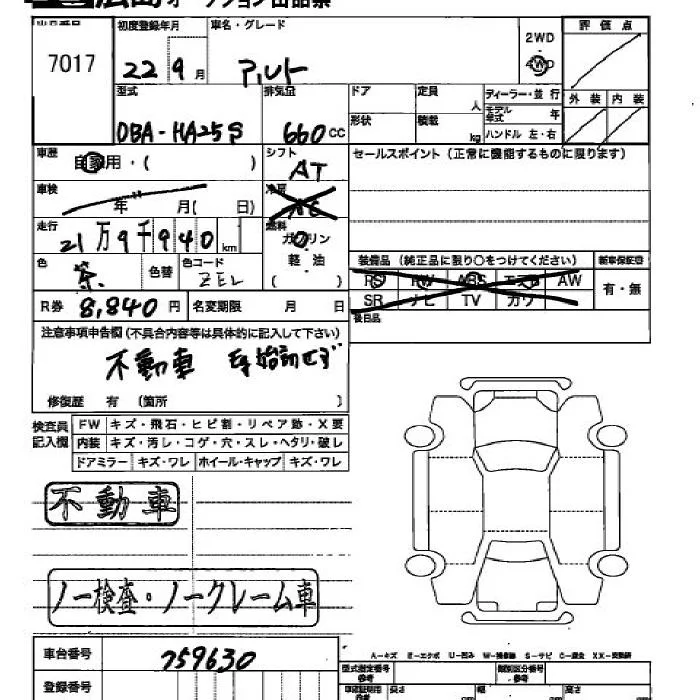 広島オークション出品票
出品番号 初度登録年月 車名・グレード
7017 22 9月 アルト 2WD 4WD 評価点
型式 排気量 ドア 定員 人 ディーラー・並行 外装 内装
DBA-HA25S 660cc 形状 積載 kg モデル年式 年 ハンドル 左・右
車歴 自家用・( ) シフト AT セールスポイント(正常に機能するものに限ります)
車検 年 月( 日) 冷房 AC
走行 21万9千940km 燃料 ガソリン 装備品(純正品に限り○をつけてください) 新車保証書
色 茶 色替 色コード ZEL 軽油 ( ) PS PW ABS エアB AW 有・無
R券 8,840円 名変期限 月 日 SR ナビ TV カワ
後日品
注意事項申告欄(不具合内容等は具体的に記入して下さい)
不動車
修復歴 有 (箇所 )
検査員記入欄 FW キズ・飛石・ヒビ割・リペア跡・X要
内装 キズ・汚レ・コゲ・穴・スレ・ヘタリ・破レ
ドアミラー キズ・ワレ ホイール・キャップ キズ・ワレ
不動車
ノー検査・ノークレーム車
A-キズ E-エクボ U-凹ミ W-補修跡 S-サビ C-腐食 XX-交換済
車台番号 759630 型式指定番号 参考 類別区分番号 参考
登録番号 車検証明用 参考 長さ cm 幅 cm 高さ cm